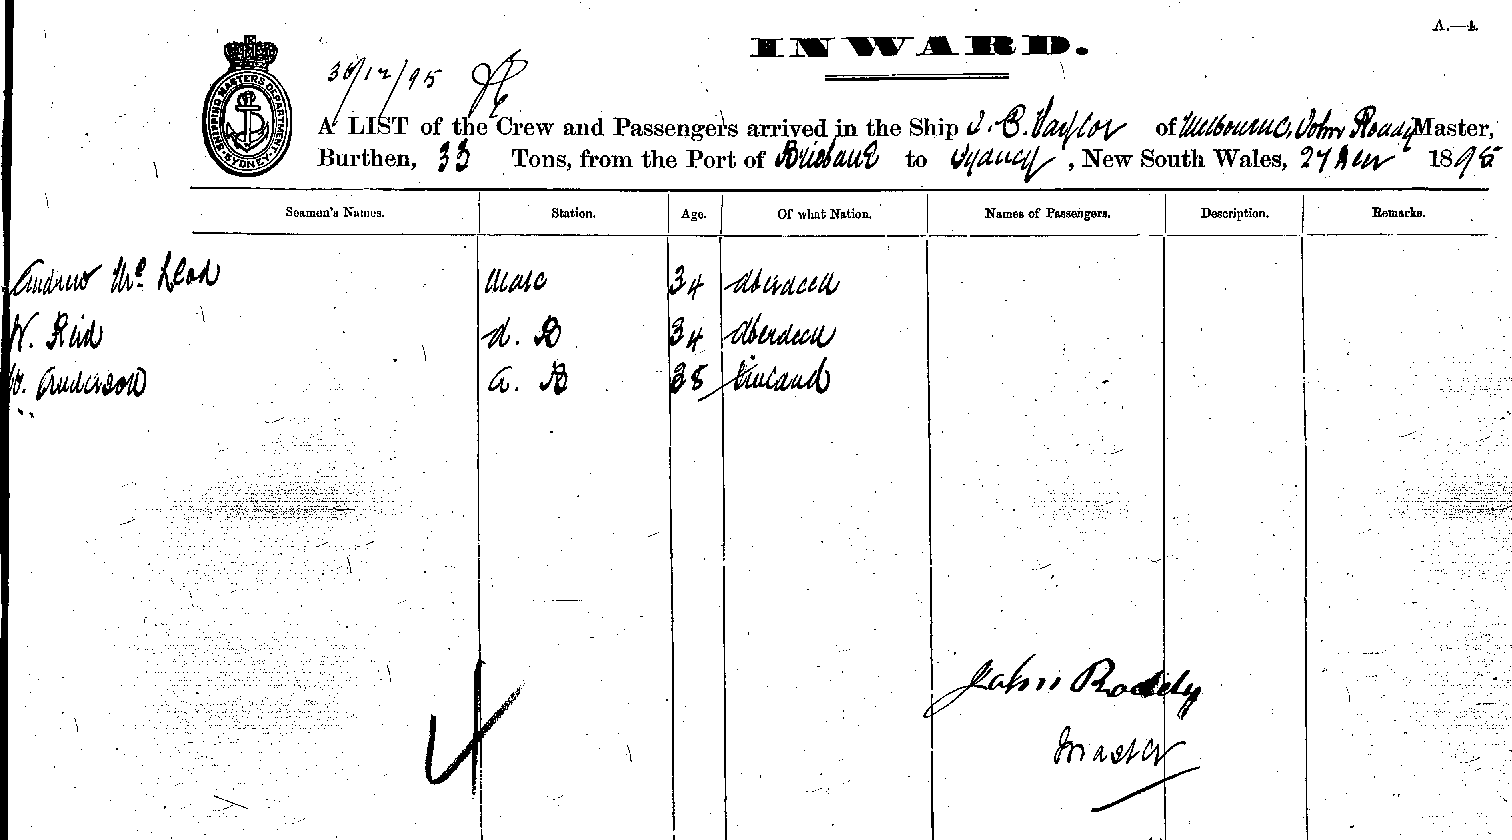 A.—4.
INWARD.
30/12/95
SHIPPING MASTERS DEPARTMENT SYDNEY
A LIST of the Crew and Passengers arrived in the Ship J. C. Taylor of Melbourne, John Roddy Master,
Burthen, 33 Tons, from the Port of Brisbane to Sydney, New South Wales, 27 1895
Seamen's Names. Station. Age. Of what Nation. Names of Passengers. Description. Remarks.
Andrew Mc Leod Mate 34 Aberdeen
W. Reid A. B 34 Aberdeen
W. Anderson A. B 38 Finland
John Roddy
Master
4